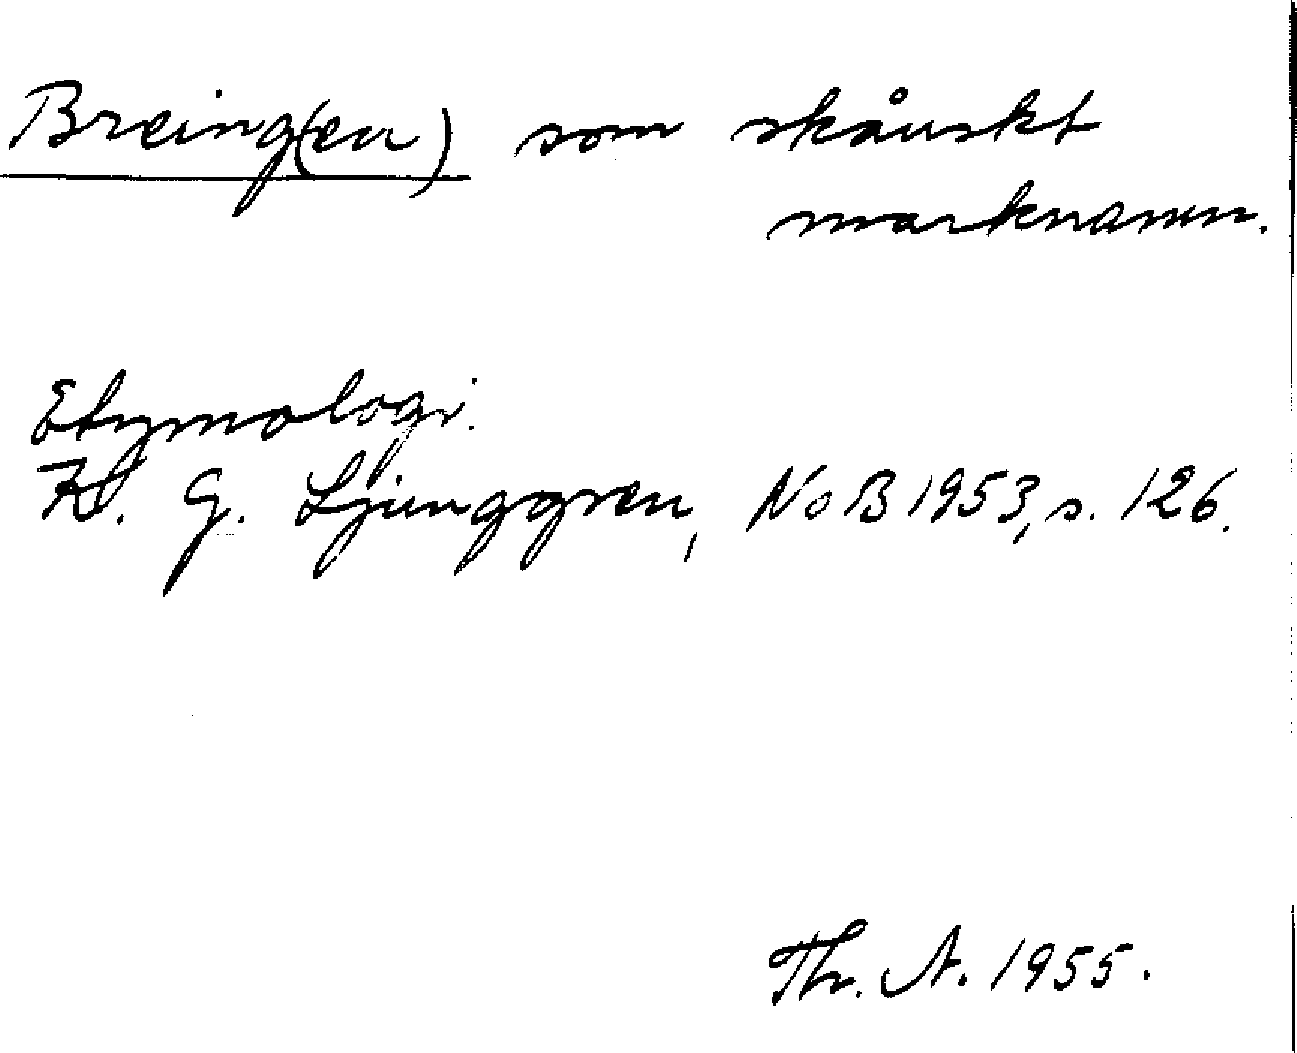 Breing(en) som skånskt
marknamn.
Etymologi.
K. G. Ljunggren, NoB 1953, s. 126.
Th. A. 1955.